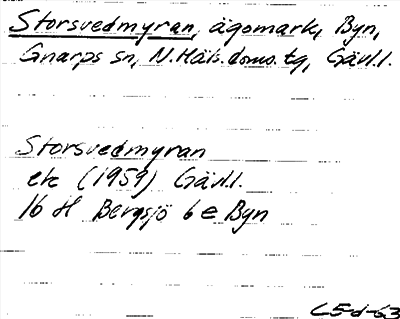 Storsvedmyran, ägomark, Byn,
Gnarps sn, N.Häls.doms.tg, Gävl.l.
Storsvedmyran
ek (1959) Gävl.l.
16 H Bergsjö 6 e Byn
L5-d-63